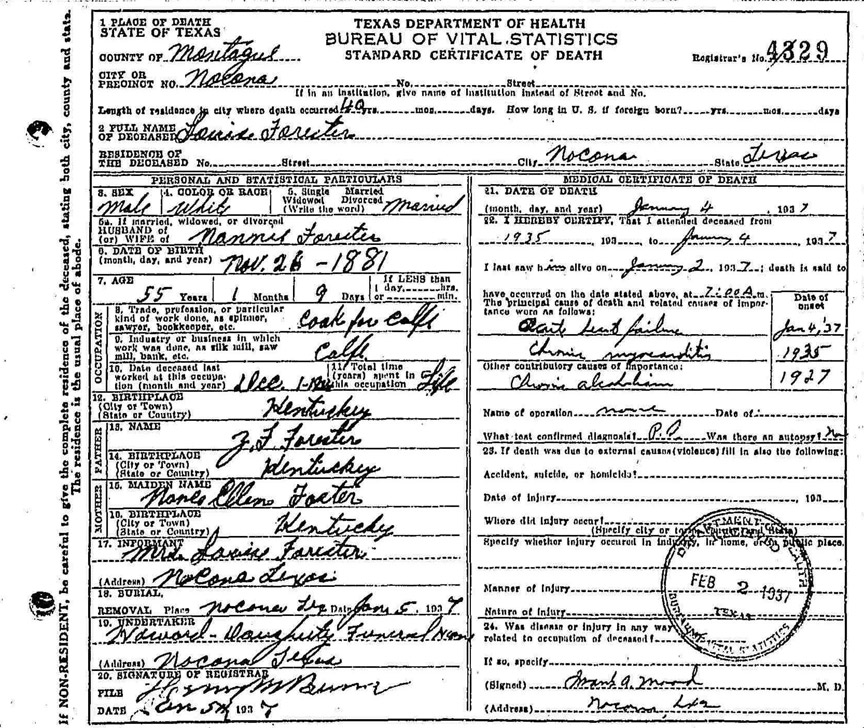 If NON-RESIDENT, be careful to give the complete residence of the deceased, stating both city, county and state.
The residence is the usual place of abode.
1 PLACE OF DEATH
STATE OF TEXAS
TEXAS DEPARTMENT OF HEALTH
BUREAU OF VITAL STATISTICS
STANDARD CERTIFICATE OF DEATH
COUNTY OF Montague
Registrar's No. 4329
CITY OR
PRECINCT NO. Nocona No. Street
If in an institution, give name of institution instead of Street and No.
Length of residence in city where death occurred 40 yrs. mos. days. How long in U. S. if foreign born? yrs. mos. days
2 FULL NAME
OF DECEASED Louise Forester
RESIDENCE OF
THE DECEASED No. Street City Nocona State Texas
PERSONAL AND STATISTICAL PARTICULARS
3. SEX 4. COLOR OR RACE 5. Single Married
Widowed Divorced
(Write the word)
Male White Married
5a. If married, widowed, or divorced
HUSBAND OF
(or) WIFE OF Nannie Forester
6. DATE OF BIRTH
(month, day, and year) Nov. 26 - 1881
7. AGE
55 Years 1 Months 9 Days
If LESS than
1 day, hrs.
or min.
OCCUPATION
8. Trade, profession, or particular
kind of work done, as spinner,
sawyer, bookkeeper, etc. Cook for Cafe
9. Industry or business in which
work was done, as silk mill, saw
mill, bank, etc. Cafe
10. Date deceased last
worked at this occupa-
tion (month and year) Dec.
11. Total time
(years) spent in
this occupation Life
12. BIRTHPLACE
(City or Town)
(State or Country) Kentucky
FATHER
13. NAME
Z. F. Forester
14. BIRTHPLACE
(City or Town)
(State or Country) Kentucky
MOTHER
15. MAIDEN NAME
Ellen Foster
16. BIRTHPLACE
(City or Town)
(State or Country) Kentucky
17. INFORMANT
Mrs. Louise Forester
(Address) Nocona Texas
18. BURIAL,
REMOVAL Place Nocona Tex Date Jan 5, 1937
19. UNDERTAKER
Daugherty Funeral Home
(Address) Nocona Texas
20. SIGNATURE OF REGISTRAR
FILE
DATE Jan 5th 1937
MEDICAL CERTIFICATE OF DEATH
21. DATE OF DEATH
(month, day, and year) January 4, 1937
22. I HEREBY CERTIFY, That I attended deceased from
1935, 193 to January 4 1937
I last saw him alive on January 2, 1937; death is said to
have occurred on the date stated above, at 7:00 A.m.
The principal cause of death and related causes of impor-
tance were as follows:
Date of
onset
heart failure Jan 4, 37
Chronic myocarditis 1935
Other contributory causes of importance:
Chronic alcoholism 1927
Name of operation none Date of
What test confirmed diagnosis? P. Was there an autopsy? No
23. If death was due to external causes (violence) fill in also the following:
Accident, suicide, or homicide?
Date of injury 193
Where did injury occur?
(Specify city or town, county and State)
Specify whether injury occured in industry, in home, or public place.
Manner of injury
Nature of injury
24. Was disease or injury in any way
related to occupation of deceased?
If so, specify
(Signed) M. D.
(Address) Nocona, Tex
FEB 2 1937
TEXAS
BUREAU VITAL STATISTICS